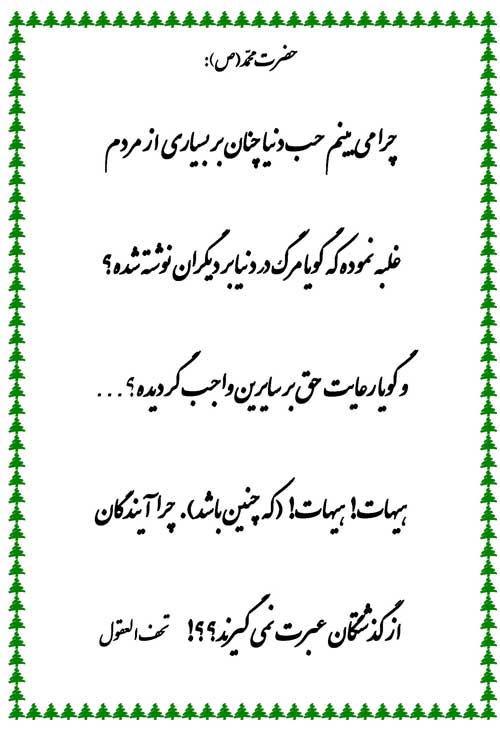 حضرت محمّد(ص):
چرا می بینم حب دنیا چنان بر بسیاری از مردم
غلبه نموده که گویا مرگ در دنیا بر دیگران نوشته شده؟
و گویا رعایت حق بر سایرین واجب گردیده؟...
هیهات! هیهات! (که چنین باشد). چرا آیندگان
از گذشتگان عبرت نمی گیرند؟؟! تحف العقول